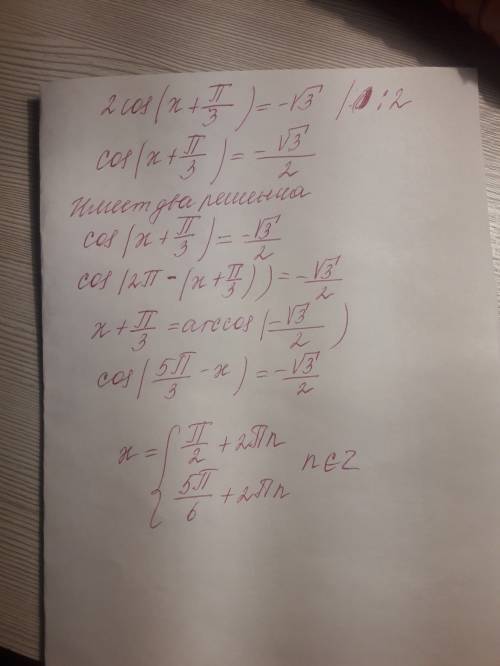 2cos(x + π/3) = -√3 | : 2
cos(x + π/3) = -√3/2
Имеет два решения
cos(x + π/3) = -√3/2
cos(2π - (x + π/3)) = -√3/2
x + π/3 = arccos(-√3/2)
cos(5π/3 - x) = -√3/2
x = { π/2 + 2πn
5π/6 + 2πn n∈Z